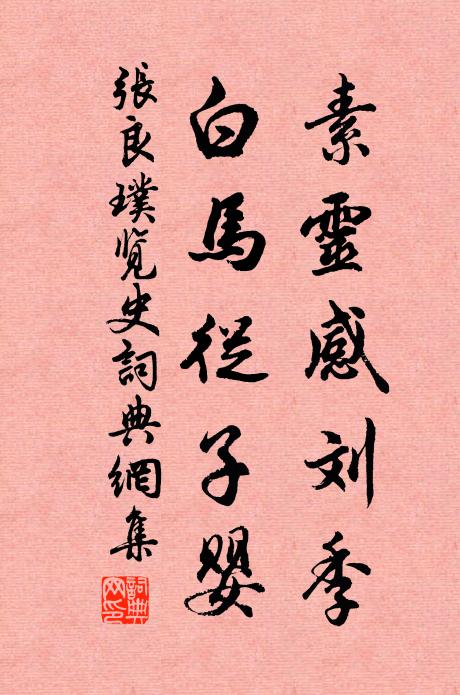 素靈感刘季
白馬從子嬰
張良璞览史詞典網集
詞典网印